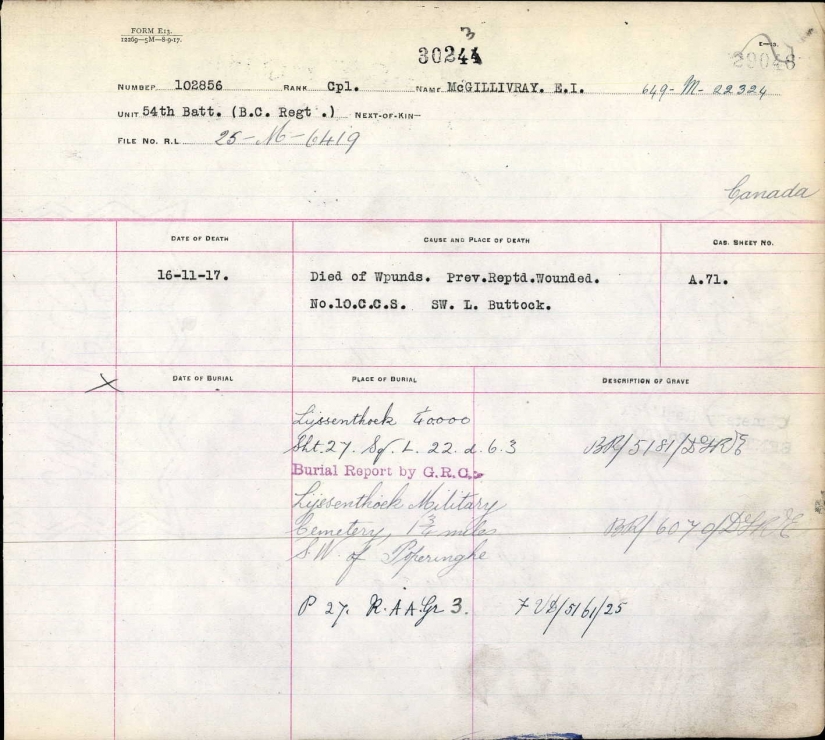 FORM E13.
12269—5M—8-9-17.
3
30244
E—13.
29048
NUMBER 102856 RANK Cpl. NAME McGILLIVRAY. E.I. 649-M-22324
UNIT 54th Batt. (B.C. Regt .) NEXT-OF-KIN—
FILE NO. R.L. 25-M-6419
Canada
DATE OF DEATH CAUSE AND PLACE OF DEATH CAS. SHEET NO.
16-11-17. Died of Wpunds. Prev.Reptd.Wounded. A.71.
No.10.C.C.S. SW. L. Buttock.
DATE OF BURIAL PLACE OF BURIAL DESCRIPTION OF GRAVE
Lijssenthoek 40000
Sht.27. Sq. L. 22. d. 6.3 BR/5181/DGR&E
Burial Report by G.R.C.
Lijssenthoek Military
Cemetery, 1 3/4 miles BR/6070/DGR&E
S.W. of Poperinghe
P 27. R. A A. Gr 3. 7 VD/5161/25